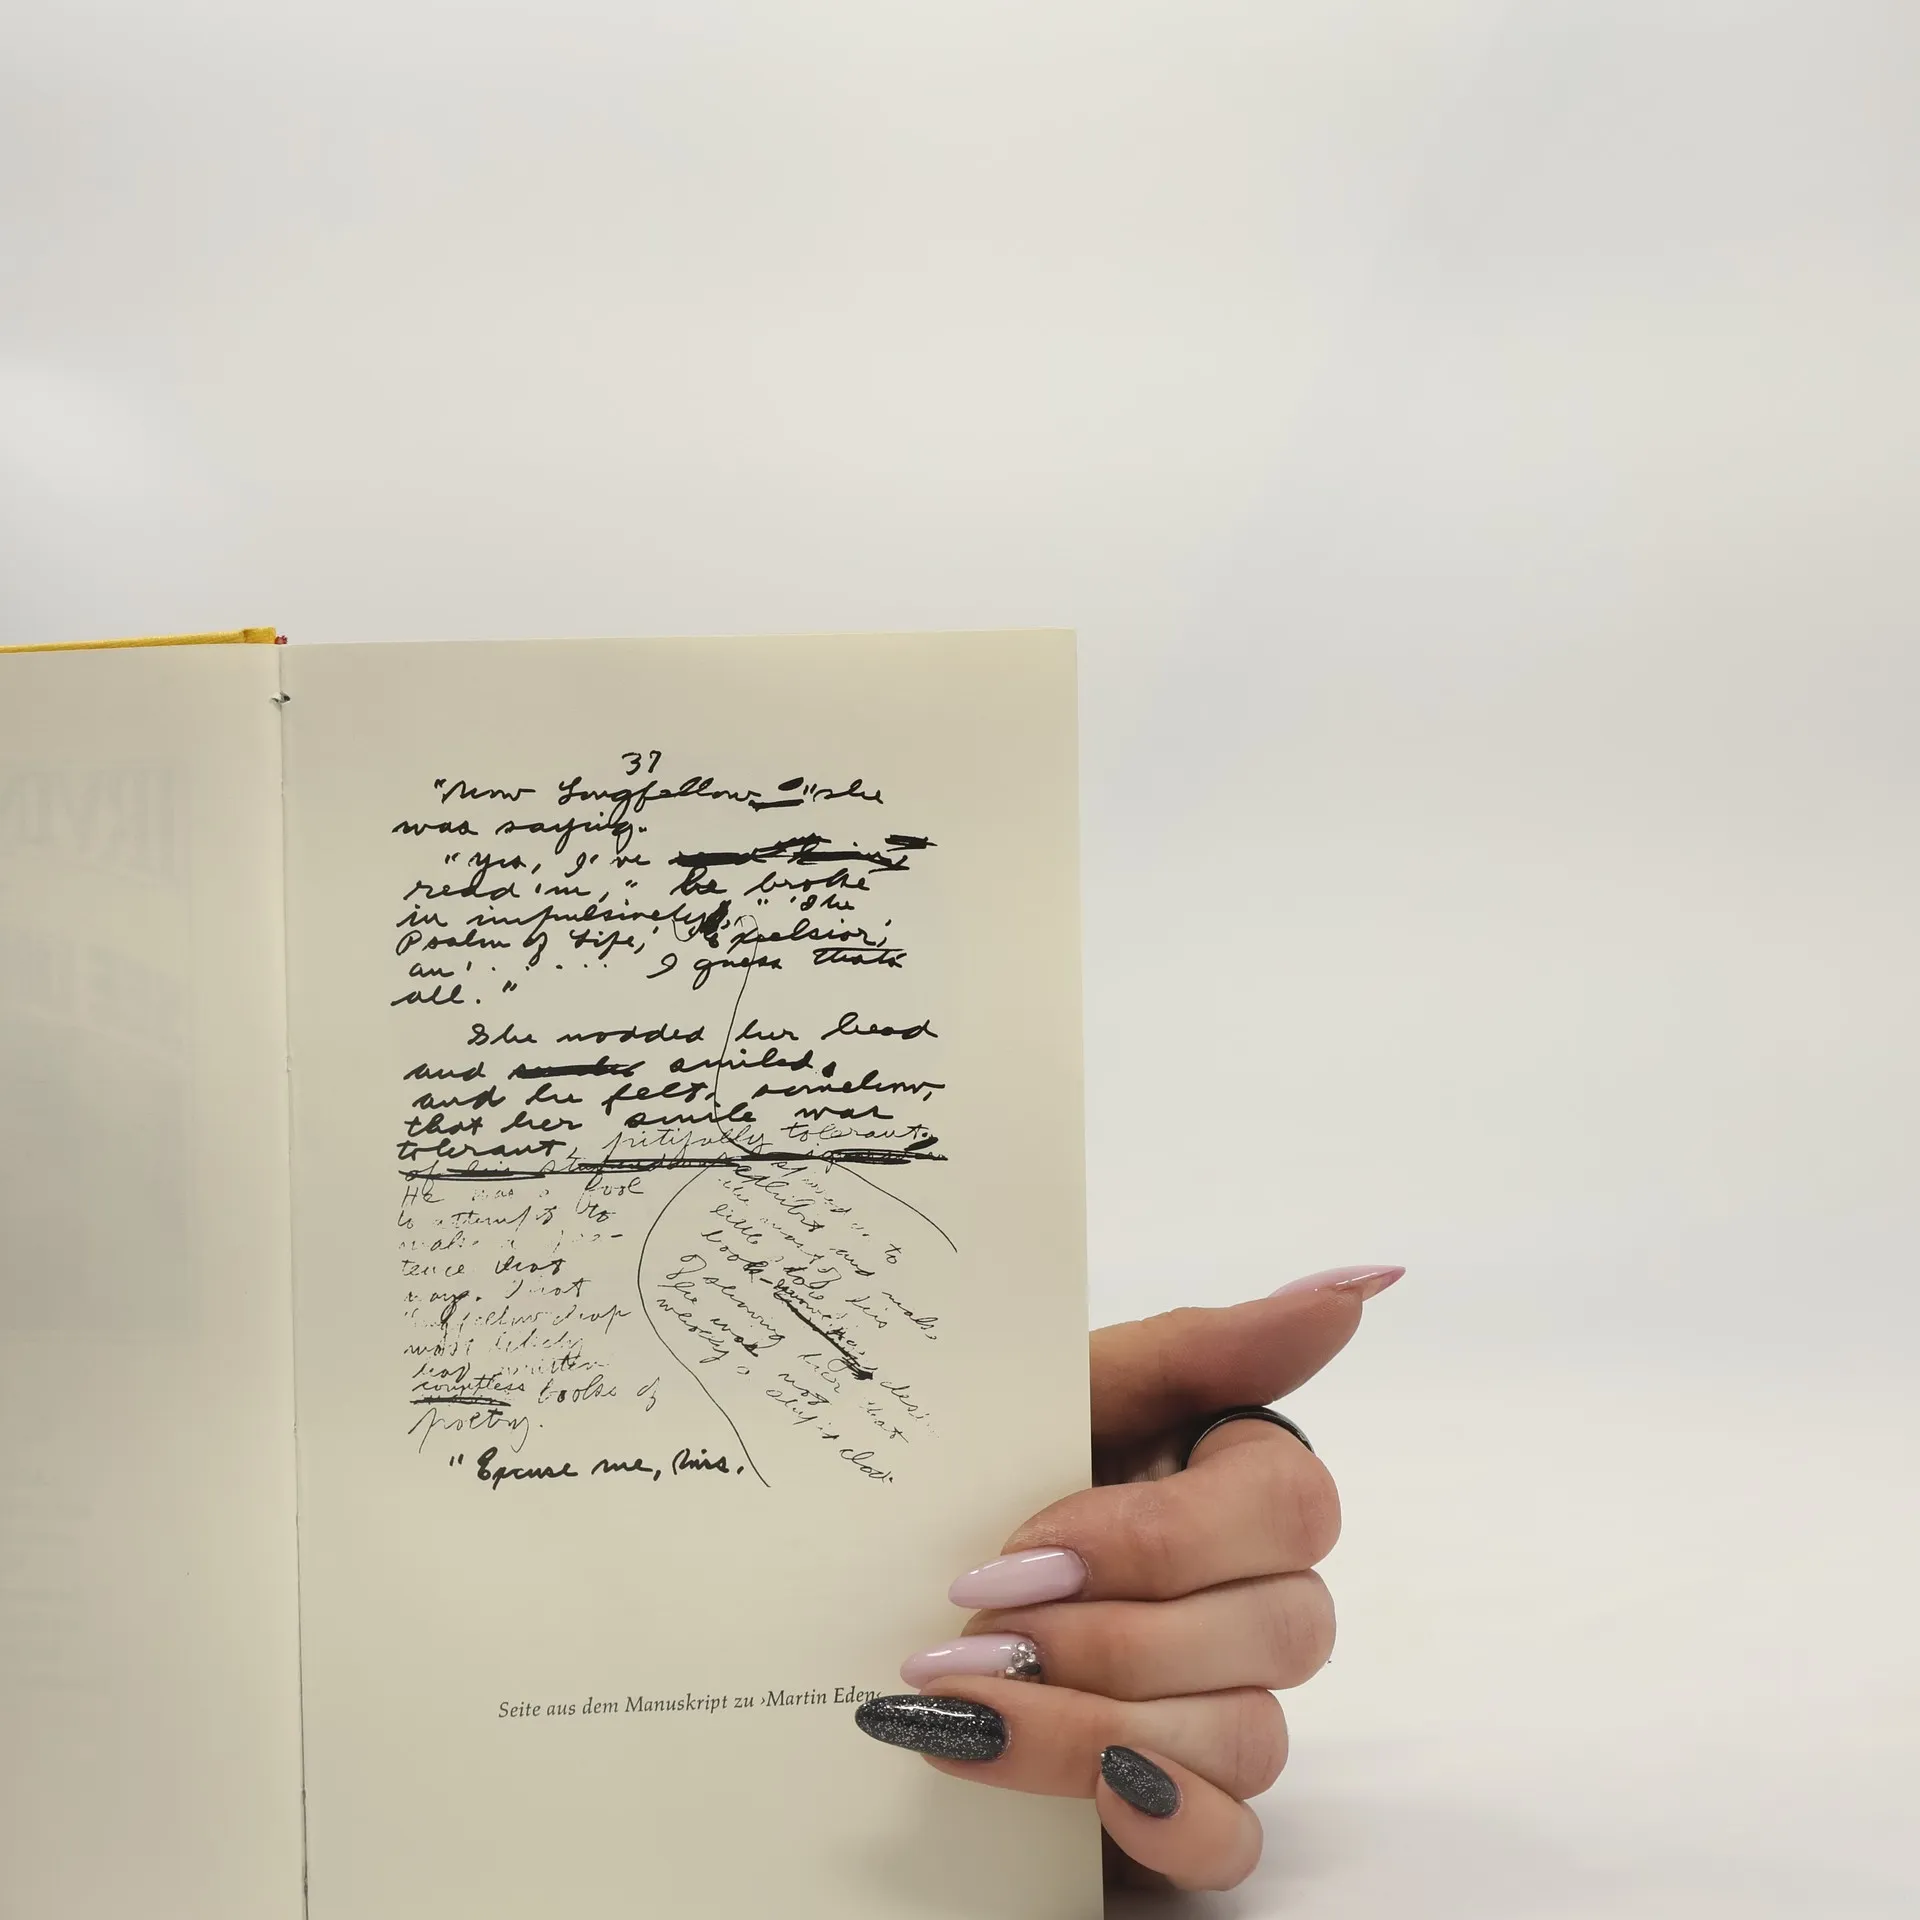 37
"Now Longfellow—" she
was saying.
"Yes, I've
read 'm," he broke
in impulsively, "'The
Psalm of Life,' 'Excelsior,'
an' . . . . . I guess that's
all."
She nodded her head
and smiled,
and he felt, somehow,
that her smile was
tolerant, pitifully tolerant.
He was a fool
to attempt to
make a pre-
tence that
way. That
Longfellow chap
most likely
had written
countless books of
poetry.
"Excuse me, Miss.
exhibit and make
the most of his
little store
book-
of showing her that
he was not
wholly a stupid clod.
Seite aus dem Manuskript zu ›Martin Eden‹